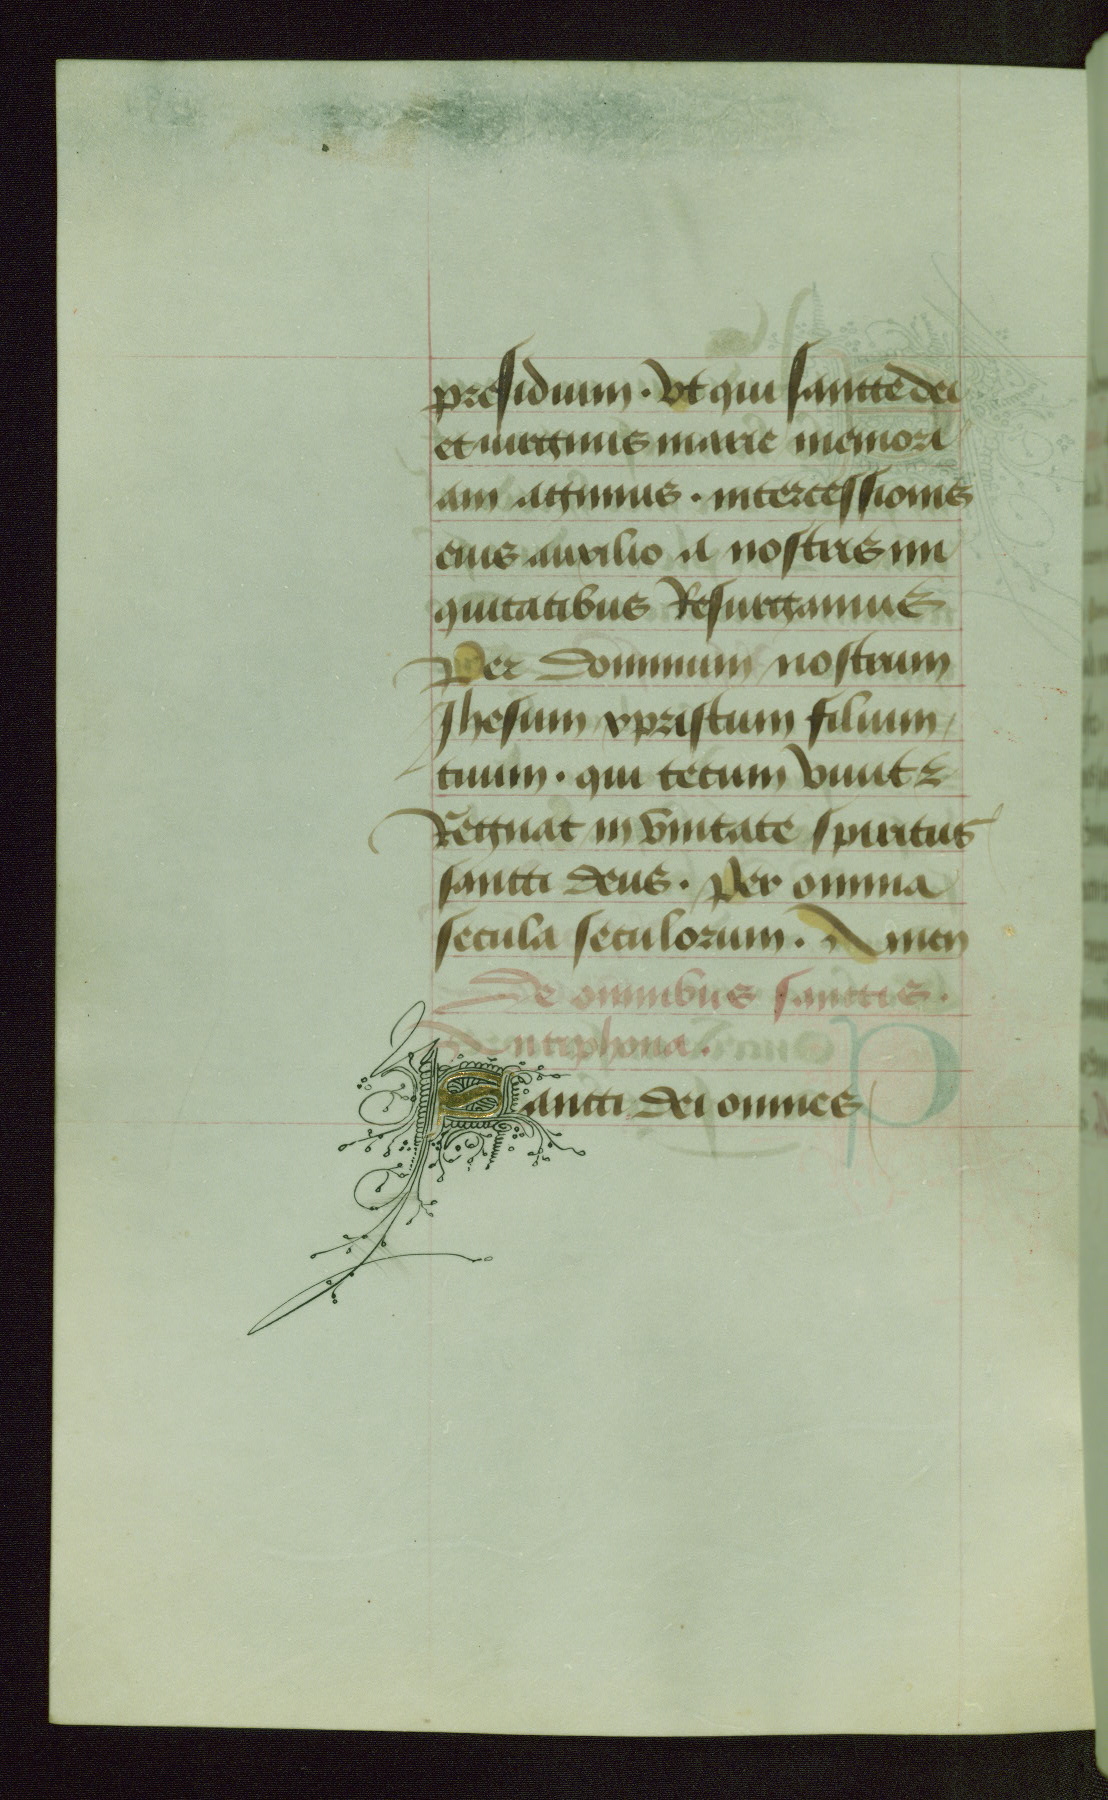 presidium . Vt qui sancte dei
et uirginis marie memori
am agimus . intercessionis
eius auxilio a nostris ini
quitatibus Resurgamus
Per Dominum nostrum
Jhesum xpristum filium
tuum . qui tecum viuit z
Regnat in vnitate spiritus
sancti deus . Per omnia
secula seculorum . Amen
De omnibus sanctis .
Antiphona .
Sancti dei omnes